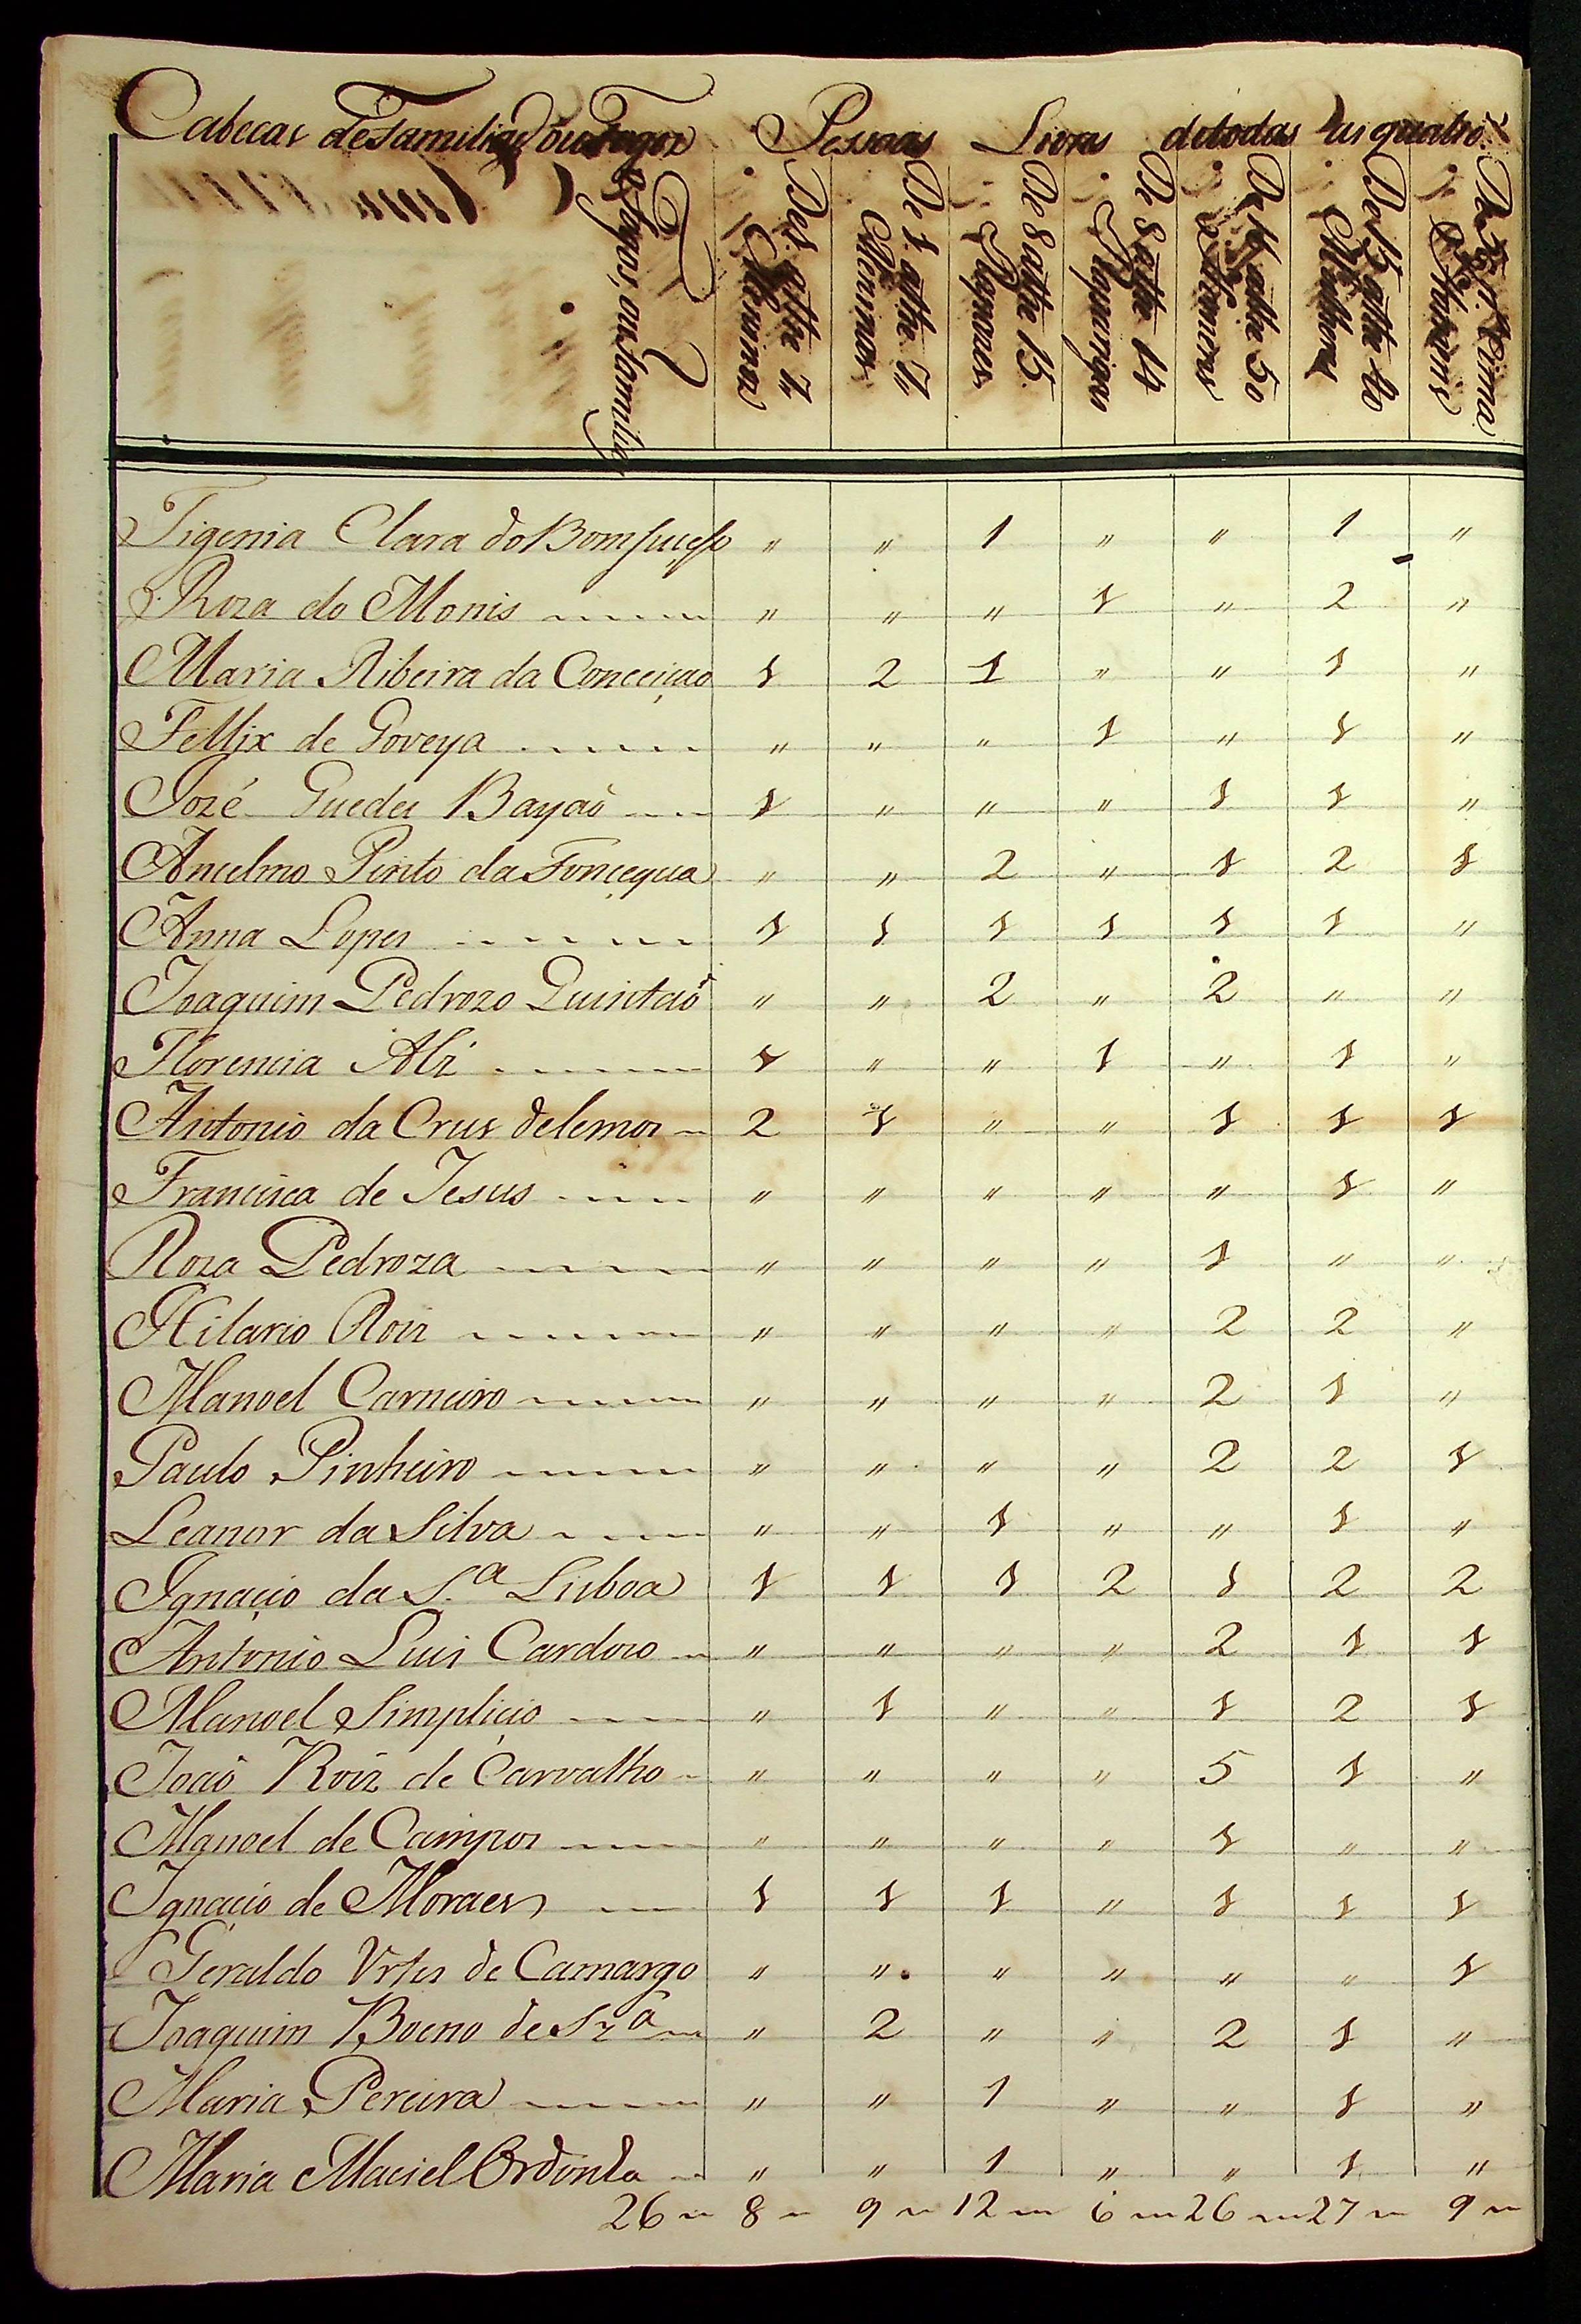 Cabecas de Familias ou Fogos Pessoas Livres de todas as quatro
Fogos, ou Familias
De 1 athe 7 Meninos
De 1 athe 7 Meninas
De 8 athe 15 Rapazes
De 8 athe 14 Raparigas
De 16 athe 50 Homens
De 15 athe 40 Mulheres
De 50 p.ª sima
Figenia Clara do Bomsuçesso " " 1 " " 1 "
Roza do Monis " " " 1 " 2 "
Maria Ribeira da Conceiçao 1 2 1 " " 1 "
Fellix de Goveya " " " 1 " 1 "
Jozé Guedes Bayaõ 1 " " " 1 1 "
Ancelmo Pinto da Fonçequa " " 2 " 1 2 1
Anna Lopes 1 1 1 1 1 1 "
Joaquim Pedrozo Quintaõ " " 2 " 2 " "
Florencia Alz 1 " " 1 " 1 "
Antonio da Crus de Lemos 2 1 " " 1 1 1
Francisca de Jesus " " " " " 1 "
Roza Pedroza " " " " 1 " "
Hilario Roiz " " " " 2 2 "
Manoel Carneiro " " " " 2 1 "
Paulo Pinheiro " " " " 2 2 1
Leanor da Silva " " 1 " " 1 "
Ignaçio da S.ª Lisboa 1 1 1 2 1 2 2
Antonio Luis Cardozo " " " " 2 1 1
Manoel Simpliçio " 1 " " 1 2 1
Joaõ Roiz de Carvalho " " " " 5 1 "
Manoel de Campos " " " " 1 " "
Ignaçio de Moraes 1 1 1 " 1 1 1
Geraldo Vrtes de Camargo " " " " " " 1
Joaquim Boeno de Szª " 2 " " 2 1 "
Maria Pereira " " 1 " " 1 "
Maria Maciel Ordonha " " 1 " " 1 "
26 8 9 12 6 26 27 9